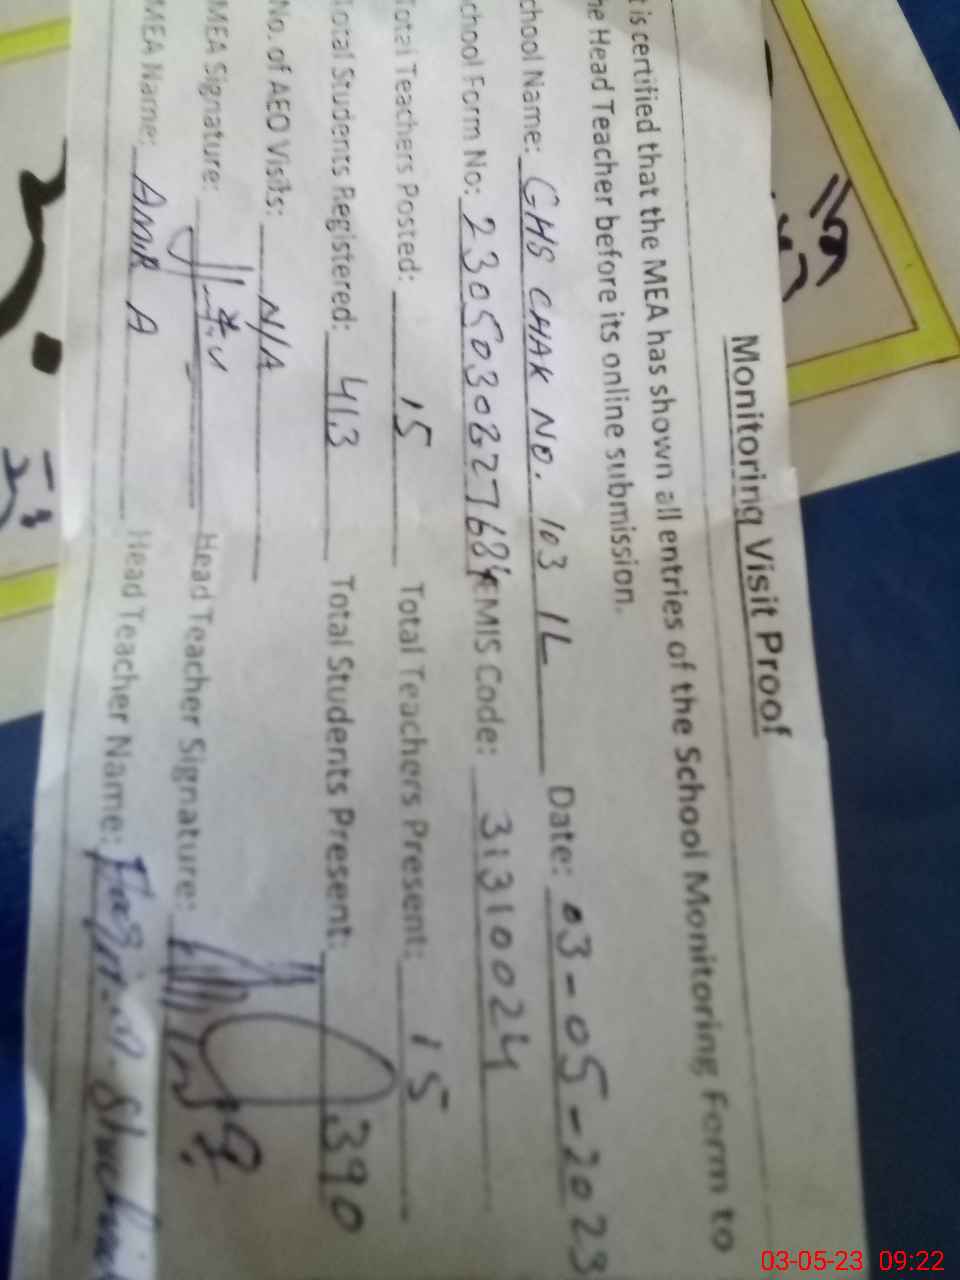 Monitoring Visit Proof
t is certified that the MEA has shown all entries of the School Monitoring Form to
he Head Teacher before its online submission.
chool Name: GHS CHAK NO. 103 1L Date: 03-05-2023
chool Form No: 23050308227684 EMIS Code: 31310024
Total Teachers Posted: 15 Total Teachers Present: 15
Total Students Registered: 413 Total Students Present: 390
No. of AEO Visits: N/A
MEA Signature: Head Teacher Signature:
MEA Name: AMIR A Head Teacher Name:
03-05-23 09:22